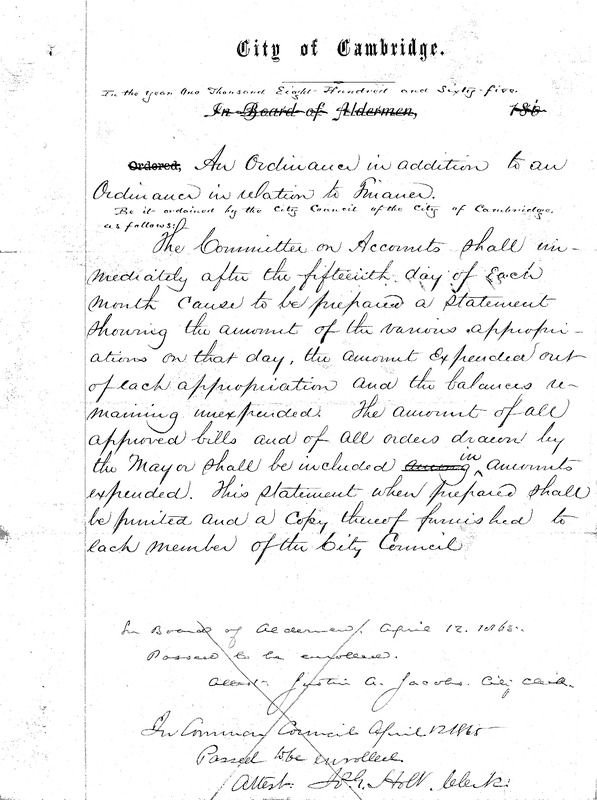 City of Cambridge.
In the year One Thousand Eight Hundred and Sixty-five.
In Board of Aldermen, 186
Ordered, An Ordinance in addition to an
Ordinance in relation to Finance.
Be it ordained by the City Council of the City of Cambridge,
as follows:
The Committee on Accounts shall im-
mediately after the fifteenth day of each
month cause to be prepared a statement
showing the amount of the various appropri-
ations on that day, the amount expended out
of each appropriation and the balances re-
maining unexpended. The amount of all
approved bills and of all orders drawn by
the Mayor shall be included among in amounts
expended. This statement when prepared shall
be printed and a copy thereof furnished to
each member of the City Council
In Board of Aldermen, April 12. 1865.
Passed to be enrolled.
Attest- Justin A. Jacobs. City Clerk.
In Common Council April 12 1865
Passed to be enrolled
Attest Holt Clerk.